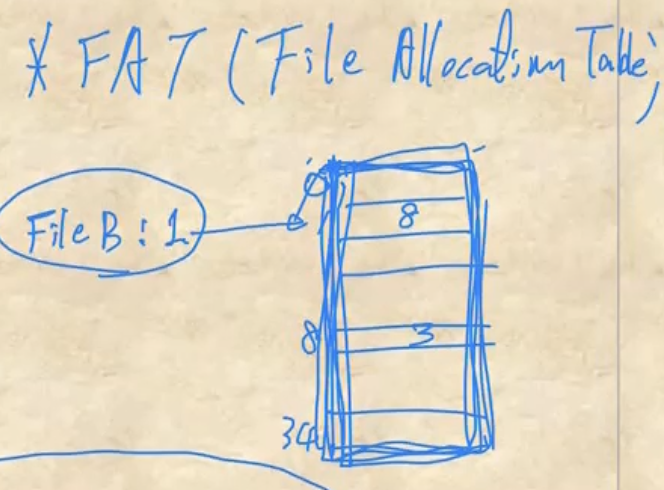 * FAT (File Allocation Table)
0
File B : 1
8
8
3
34